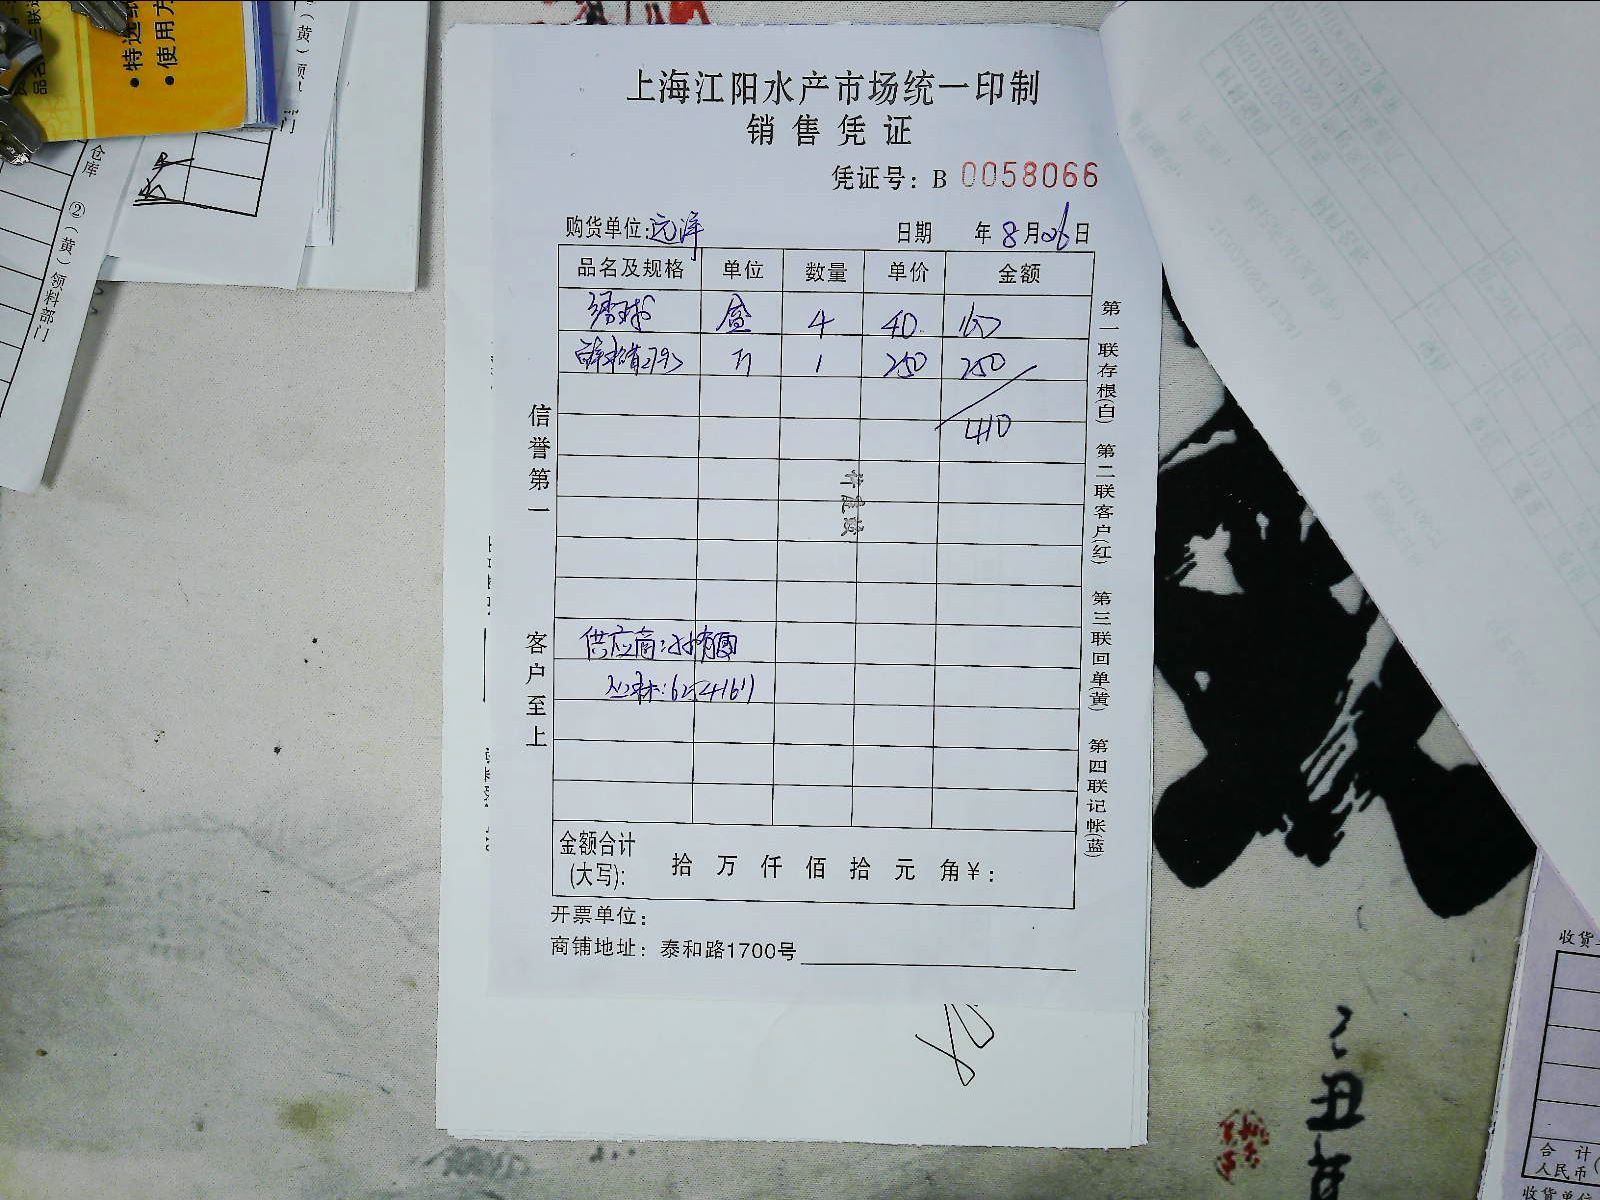 上海江阳水产市场统一印制
销售凭证
凭证号：B 0058066
购货单位:远洋 日期 年8月26日
品名及规格 单位 数量 单价 金额
绣球 盒 4 40 160
1 250 250
410
信誉第一
客户至上
供应商:
624161
第一联存根(白) 第二联客户(红) 第三联回单(黄) 第四联记帐(蓝)
金额合计
(大写): 拾 万 仟 佰 拾 元 角 ¥:
开票单位:
商铺地址: 泰和路1700号
•特选
•使用方
仓库
②(黄)领料部门
丑
收货
合 计
人民币(
收货单位